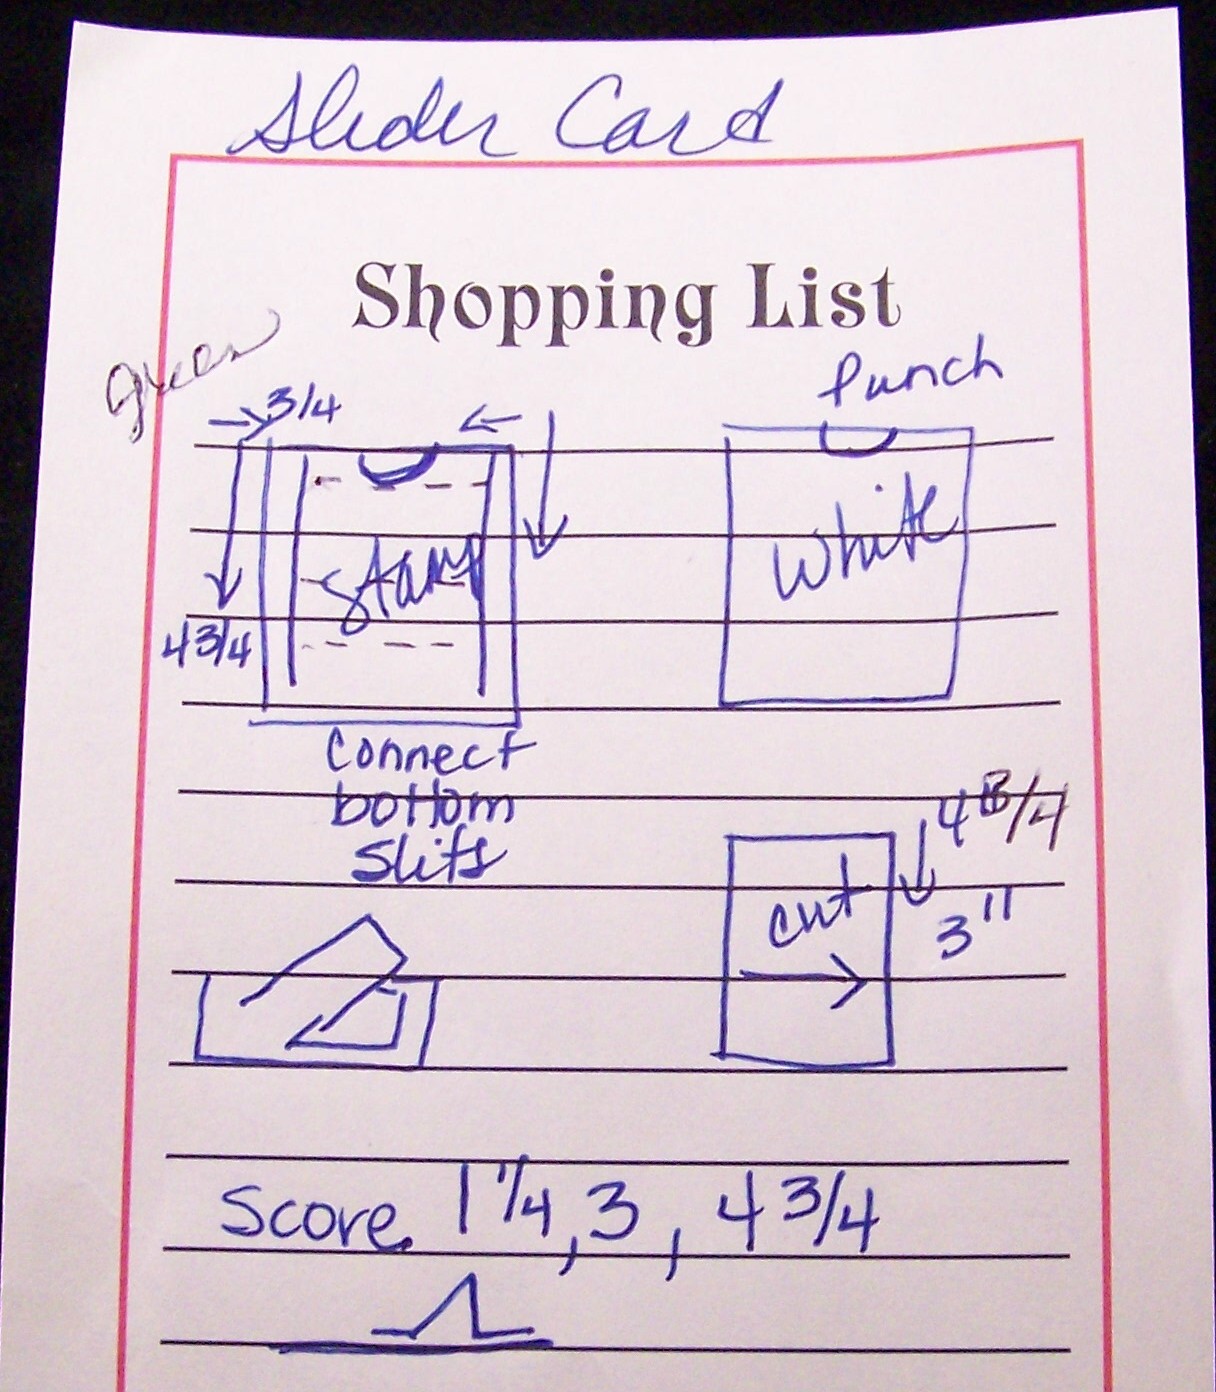 Slider Card
Shopping List
green
Punch
3/4
stamp
White
4 3/4
Connect
bottom
Slits
4 3/4
cut
3"
Score 1 1/4, 3, 4 3/4